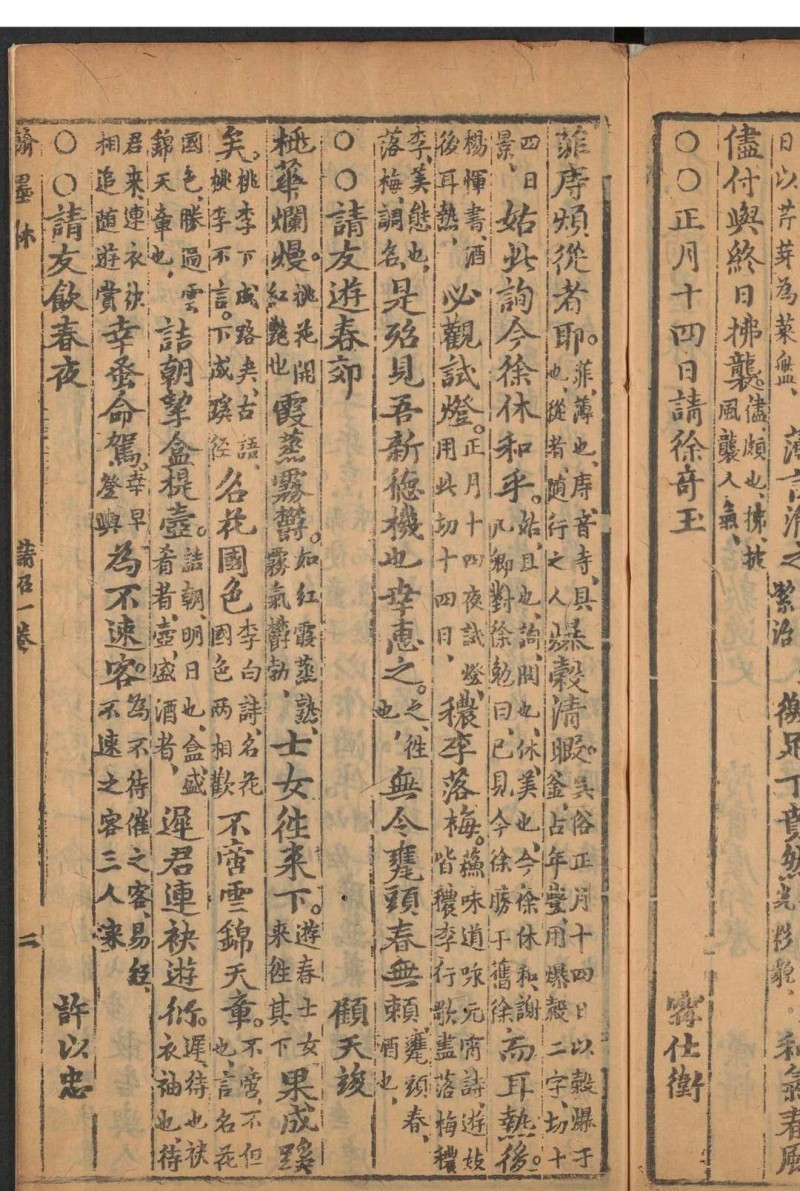 日以芹芽為菜盤、
儘付與終日拂襲。儘、頗也、拂、披風襲人氣、
○○正月十四日請徐奇玉
仕衡
菲庤頻從者耶。菲、薄也、庤、音寺、具也、從者、隨行之人、爆穀清暇。吳俗正月十四日以穀爆于釜、占年瑩、用爆穀二字、切十
四日景、姑此詢今徐休和乎。姑、且也、詢、問也、休、美也、今徐休和、謝凡卿對徐勉曰、已見今徐勝于舊徐、而耳熱後。
楊惲書、酒後耳熱、必觀試燈。正月十四夜試燈、用此切十四日、穠李落梅。蘓味道咏元宵詩、遊妓皆穠李、行歌盡落梅、穠
李、美態也、落梅、調名、是殆見吾新德機也幸惠之。之、徃也、無令甕頭春無賴、甕頭春、酒也、
○○請友遊春郊 顧天埈
桃華爛熳。桃花開紅艷也 霞蒸霧欝。如紅霞蒸熟、霧氣欝勃、士女徃来下。遊春士女来徃其下 果成蹊
矣。桃李下成路矣、古語、桃李不言。下成蹊徑 名花國色李白詩、名花國色两相歡 不啻雲錦天章。不啻、不但也、言名花
國色、勝過雲錦天章也、詰朝挈盒提壺。詰朝、明日也、盒、盛肴者、壺、盛酒者、遲君連袂遊衍。遲、待也、袂、衣袖也、待
君来連衣袂相追随遊賞 幸蚤命駕。幸早發輿 為不速客。為不待催之客、易經、不速之客三人来
○○請友飲春夜 許以忠
翰墨休 請召一卷 二